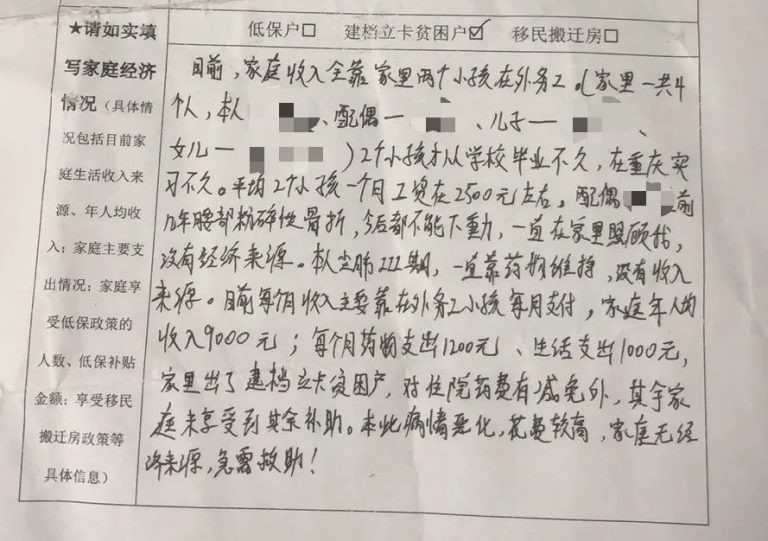 ★请如实填
写家庭经济
情况（具体情
况包括目前家
庭生活收入来
源、年人均收
入；家庭主要支
出情况；家庭享
受低保政策的
人数、低保补贴
金额；享受移民
搬迁房政策等
具体信息）
低保户□ 建档立卡贫困户☑ 移民搬迁房□
目前，家庭收入全靠家里两个小孩在外务工。（家里一共4
个人，本人 、配偶一 、儿子一 、
女儿一 ）2个小孩才从学校毕业不久，在重庆实
习不久。平均2个小孩一个月工资在2500元左右，配偶 前
几年腰部粉碎性骨折，今后都不能下重力，一直在家里照顾我，
没有经济来源。本人尘肺III期，一直靠药物维持，没有收入
来源。目前每月收入主要靠在外务工小孩每月支付，家庭年人均
收入9000元；每个月药物支出1200元、生活支出1000元，
家里出了建档立卡贫困户，对住院药费有减免外，其余家
庭未享受到其余补助。本此病情恶化，花费较高，家庭无经
济来源，急需救助！